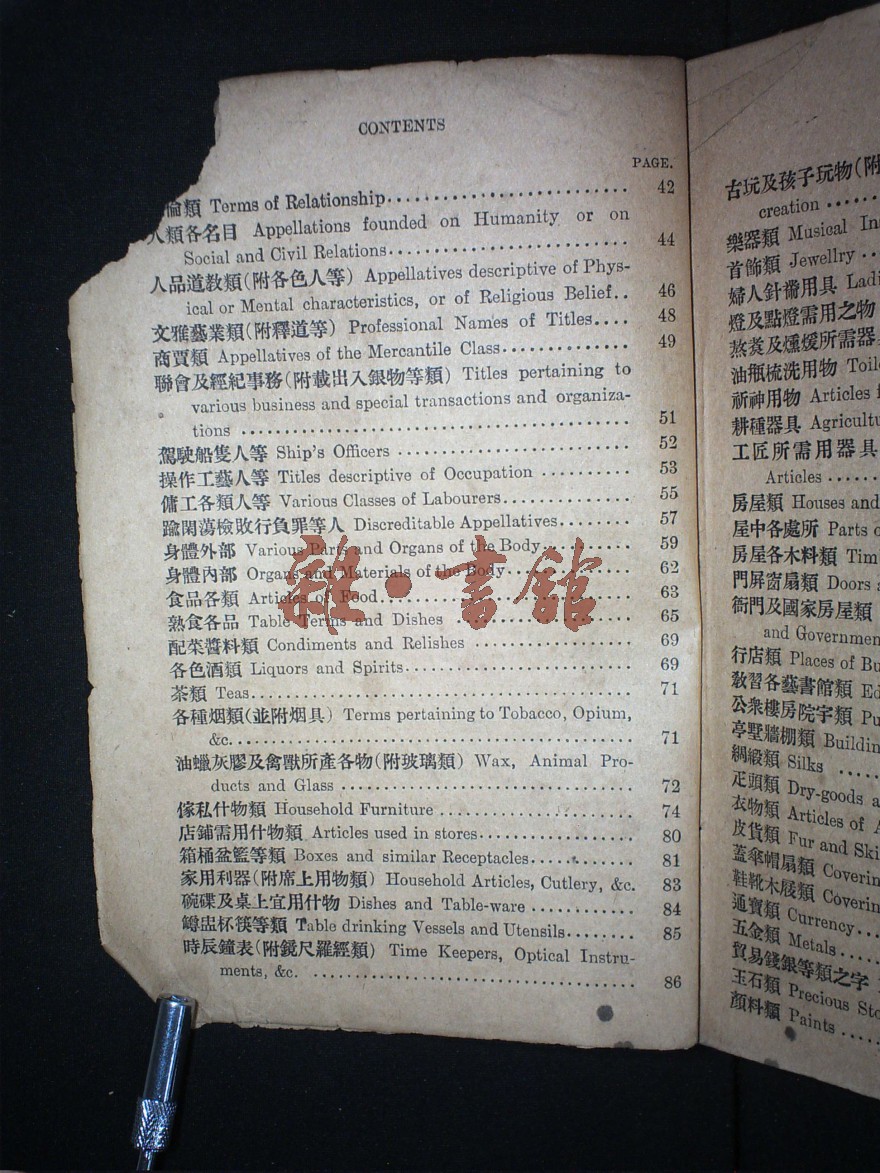 CONTENTS
PAGE.
倫類 Terms of Relationship 42
人類各名目 Appellations founded on Humanity or on
Social and Civil Relations 44
人品道教類(附各色人等) Appellatives descriptive of Phys-
ical or Mental characteristics, or of Religious Belief.. 46
文雅藝業類(附釋道等) Professional Names of Titles.... 48
商賈類 Appellatives of the Mercantile Class 49
聯會及經紀事務(附載出入銀物等類) Titles pertaining to
various business and special transactions and organiza-
tions 51
駕駛船隻人等 Ship's Officers 52
操作工藝人等 Titles descriptive of Occupation 53
傭工各類人等 Various Classes of Labourers 55
踰閑蕩檢敗行負罪等人 Discreditable Appellatives 57
身體外部 Various Parts and Organs of the Body 59
身體內部 Organs and Materials of the Body 62
食品各類 Articles of Food 63
熟食各品 Table Terms and Dishes 65
配菜醬料類 Condiments and Relishes 69
各色酒類 Liquors and Spirits 69
茶類 Teas 71
各種烟類(並附烟具) Terms pertaining to Tobacco, Opium,
&c. 71
油蠟灰膠及禽獸所產各物(附玻璃類) Wax, Animal Pro-
ducts and Glass 72
傢私什物類 Household Furniture 74
店鋪需用什物類 Articles used in stores 80
箱桶盆籃等類 Boxes and similar Receptacles 81
家用利器(附席上用物類) Household Articles, Cutlery, &c. 83
碗碟及桌上宜用什物 Dishes and Table-ware 84
罇盅杯筷等類 Table drinking Vessels and Utensils 85
時辰鐘表(附鏡尺羅經類) Time Keepers, Optical Instru-
ments, &c. 86
雜·書館
古玩及孩子玩物(附
creation
樂器類 Musical In
首飾類 Jewellry
婦人針黹用具 Ladi
燈及點燈需用之物
油瓶梳洗用物 Toile
祈神用物 Articles f
耕種器具 Agricultu
工匠所需用器具
Articles
房屋類 Houses and
屋中各處所 Parts o
房屋各木料類 Tim
門屏窗扇類 Doors a
衙門及國家房屋類
and Governmen
行店類 Places of Bu
教習各藝書館類 Ed
公衆樓房院宇類 Pu
亭墅牆棚類 Building
綢緞類 Silks
疋頭類 Dry-goods a
衣物類 Articles of A
皮貨類 Fur and Ski
蓋傘帽扇類 Coverin
鞋靴木屐類 Coverin
通寶類 Currency
五金類 Metals
貿易錢銀等類之字
玉石類 Precious Sto
顏料類 Paints